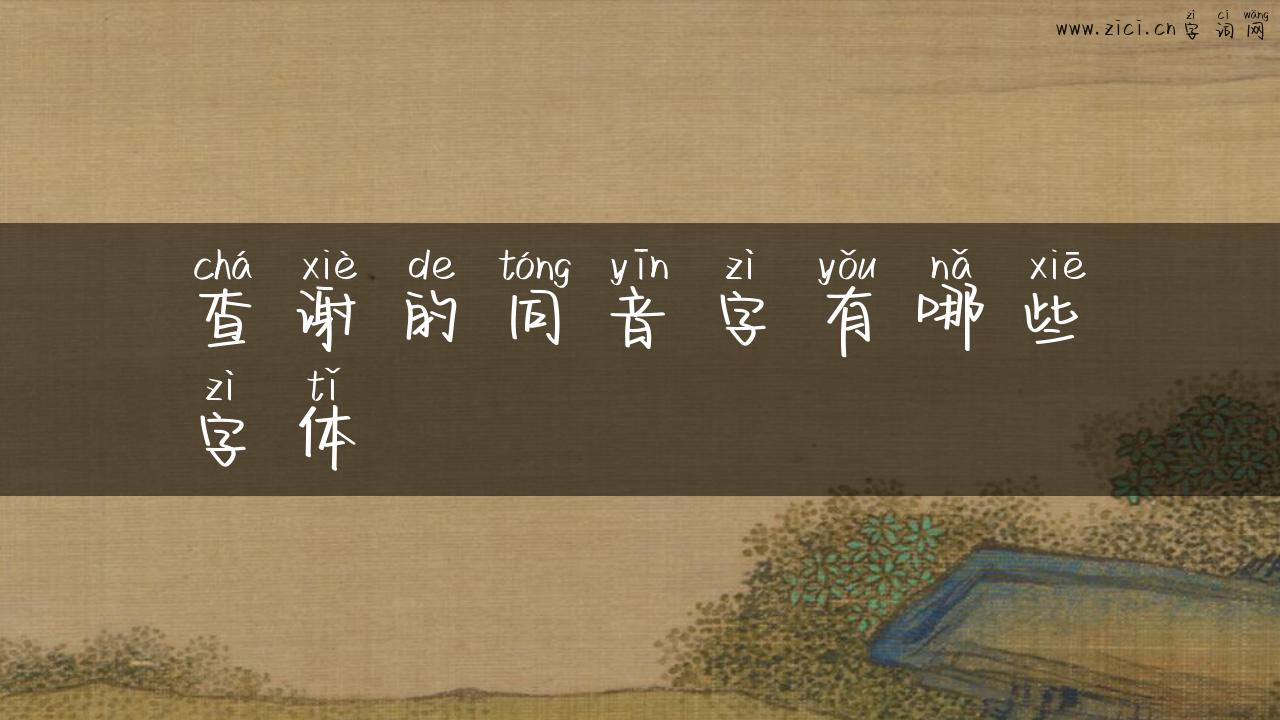 www.zici.cn zì cí wǎng
字词网
chá xiè de tóng yīn zì yǒu nǎ xiē
查谢的同音字有哪些
zì tǐ
字体